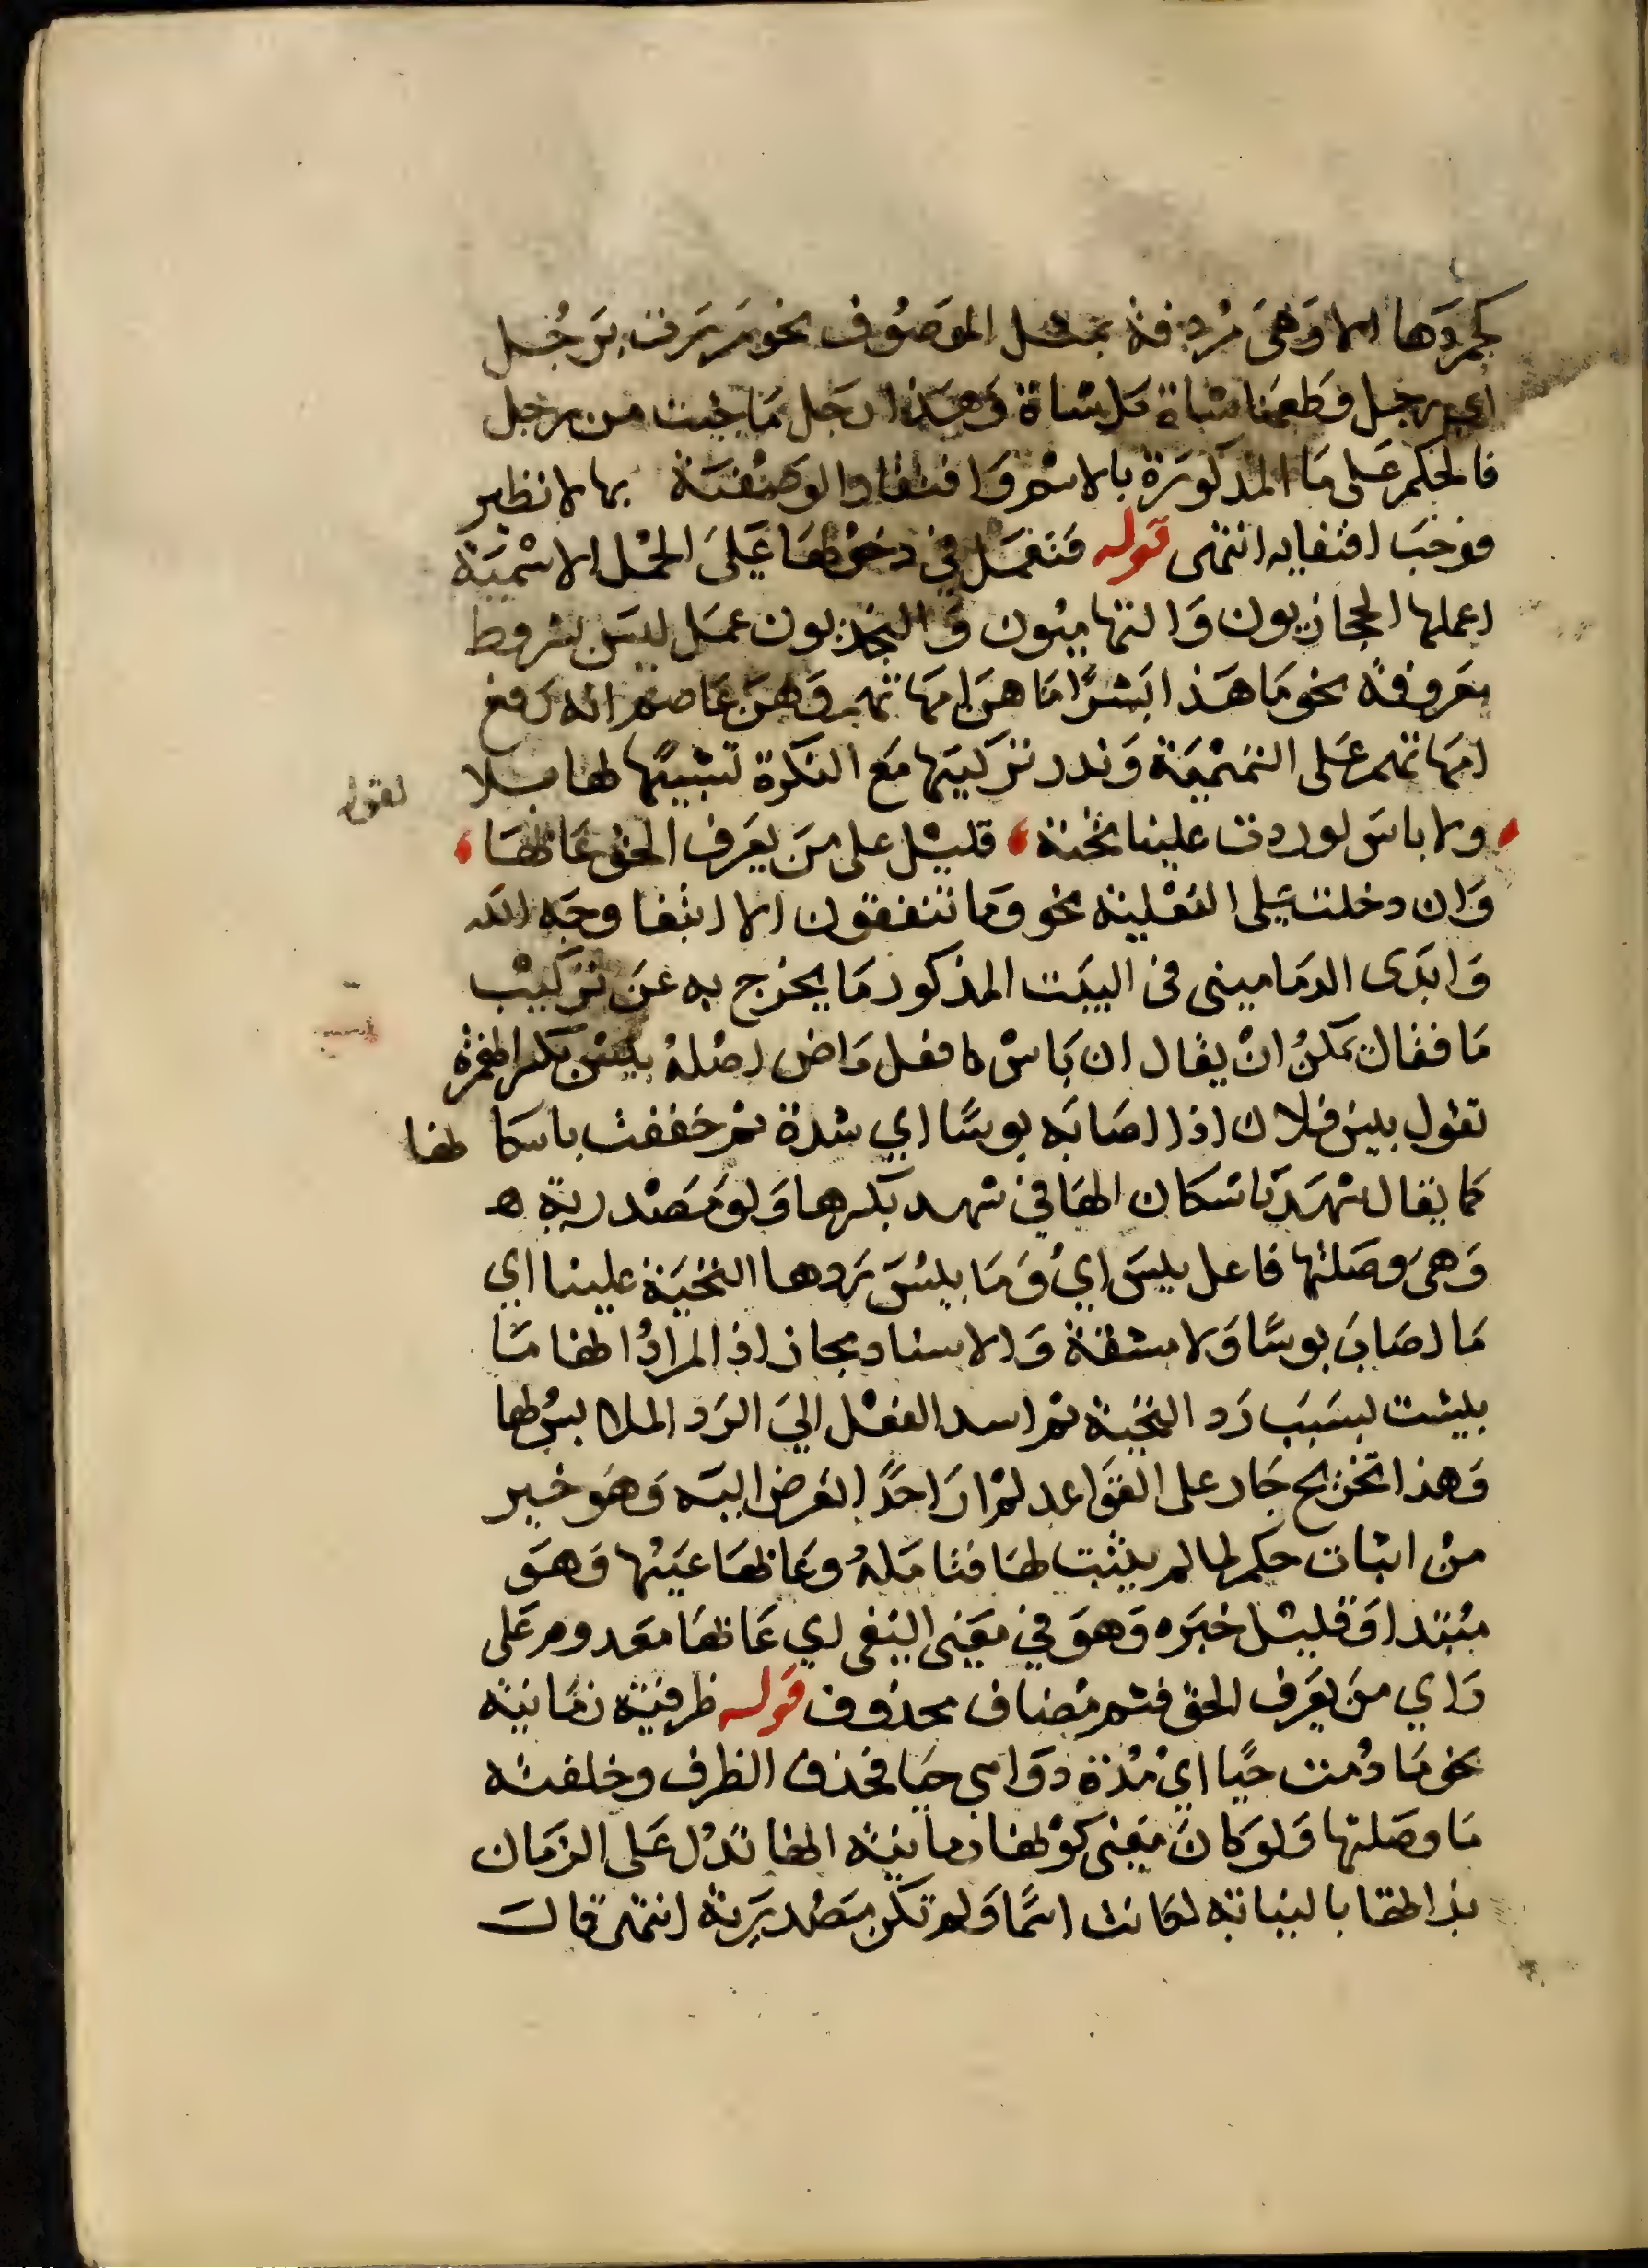 كجمودها الا وهي مردفة بمثل الموصوف نحو مررت برجل
اي رجل وطعمنا شاة كل شاة وهذا رجل ما جيت من رجل
فالحكم على ما المذكورة بالاسم واقتفاد الوصفية بها لا نظير
فوجب اقتفايه انتهى قوله فتعمل في دخولها على الجمل الاسمية
اعملها الحجازيون والتهاميون والنجديون عمل ليس بشروط
معروفة نحو ما هذا بشرا ما هن امهاتهم وعن عاصم انه رفع
امهاتهم على التميمية وندر تركيبها مع النكرة تشبيها لها بلا
لقوله
ولا باس لو ردت علينا تحية قليل على من يعرف الحق عابها
وان دخلت على الفعلية نحو وما تنفقون الا ابتغا وجه الله
وابدى الدماميني في البيت المذكور ما يخرج به عن تركيب
ما فقال يمكن ان يقال ان باس فعل ماض اصله بئس بكسر الهمزة
تقول بيس فلان اذا اصابه بوسا اي شدة ثم خففت باسكانها
كما يقال شهد باسكان الها في شهد بكسرها ولو مصدرية
وهي وصلتها فاعل بيس اي وما بيس ردها التحية علينا اي
ما اصاب بوسا ولا مشقة والاسناد مجاز اذ المراد انها ما
بيست بسبب رد التحية ثم اسند الفعل الي الرد الملابس لها
وهذا تخريج جار على القواعد لم ار احدا تعرض اليه وهو خير
من اثبات حكم لما لم يثبت لها فتامله وعابها عيبها وهو
مبتدا وقليل خبره وهو في معنى النفي اي عابها معدوم على
راي من يعرف الحق فثم مضاف محذوف قوله ظرفية زمانية
نحو ما دمت حيا اي مدة دوامي حيا فحذف الظرف وخلفته
ما وصلتها ولو كان معنى كونها زمانية انها تدل على الزمان
بذاتها لا بالنيابة لكانت اسما ولم تكن مصدرية انتهى قال